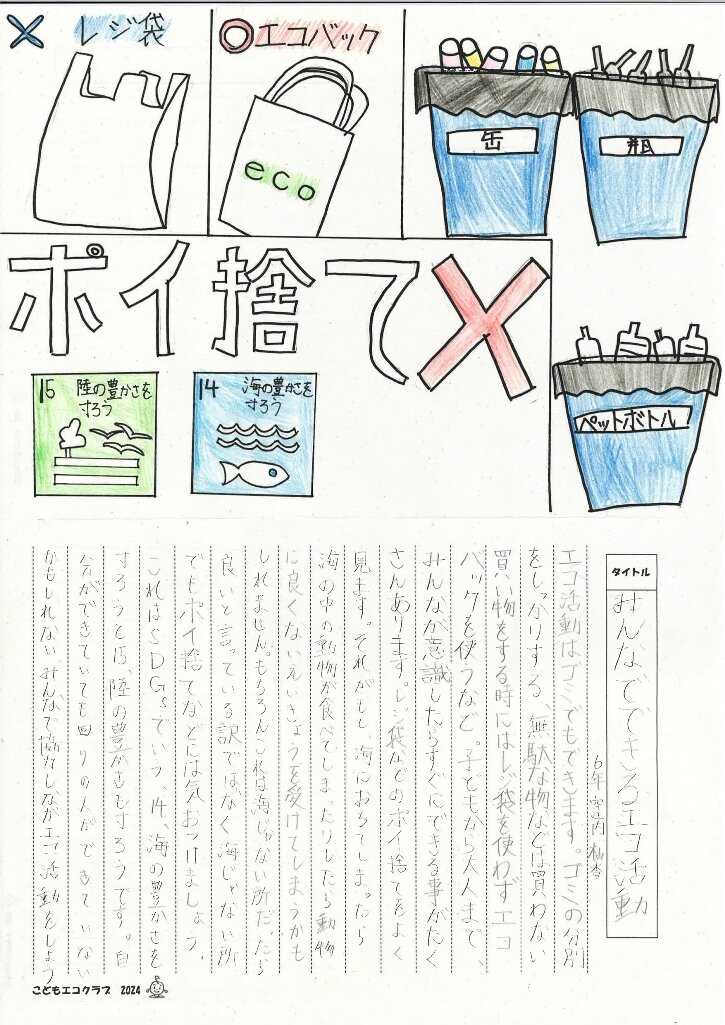 レジ袋
エコバック
eco
缶
瓶
ポイ捨て
15 陸の豊かさを
守ろう
14 海の豊かさを
守ろう
ペットボトル
タイトル
みんなでできるエコ活動
6年
エコ活動はゴミでもできます。ゴミの分別
をしっかりする、無駄な物などは買わない
買い物をする時にはレジ袋を使わずエコ
バックを使うなど。子どもから大人まで、
みんなが意識したらすぐにできる事がたく
さんあります。レジ袋などのポイ捨てをよく
見ます。それがもし、海におちてしまったら
海の中の動物が食べてしまったりしたら動物
に良くないえいきょうを受けてしまうかも
しれません。もちろんこれは海じゃない所だったら
良いと言っている訳ではなく海じゃない所
でもポイ捨てなどには気おつけましょう。
これはSDGsでいう、14、海の豊かさを
守ろうと15、陸の豊かさも守ろうです。自
分ができていても回りの人ができていない
かもしれない、みんなで協力しながエコ活動をしよう
こどもエコクラブ 2024